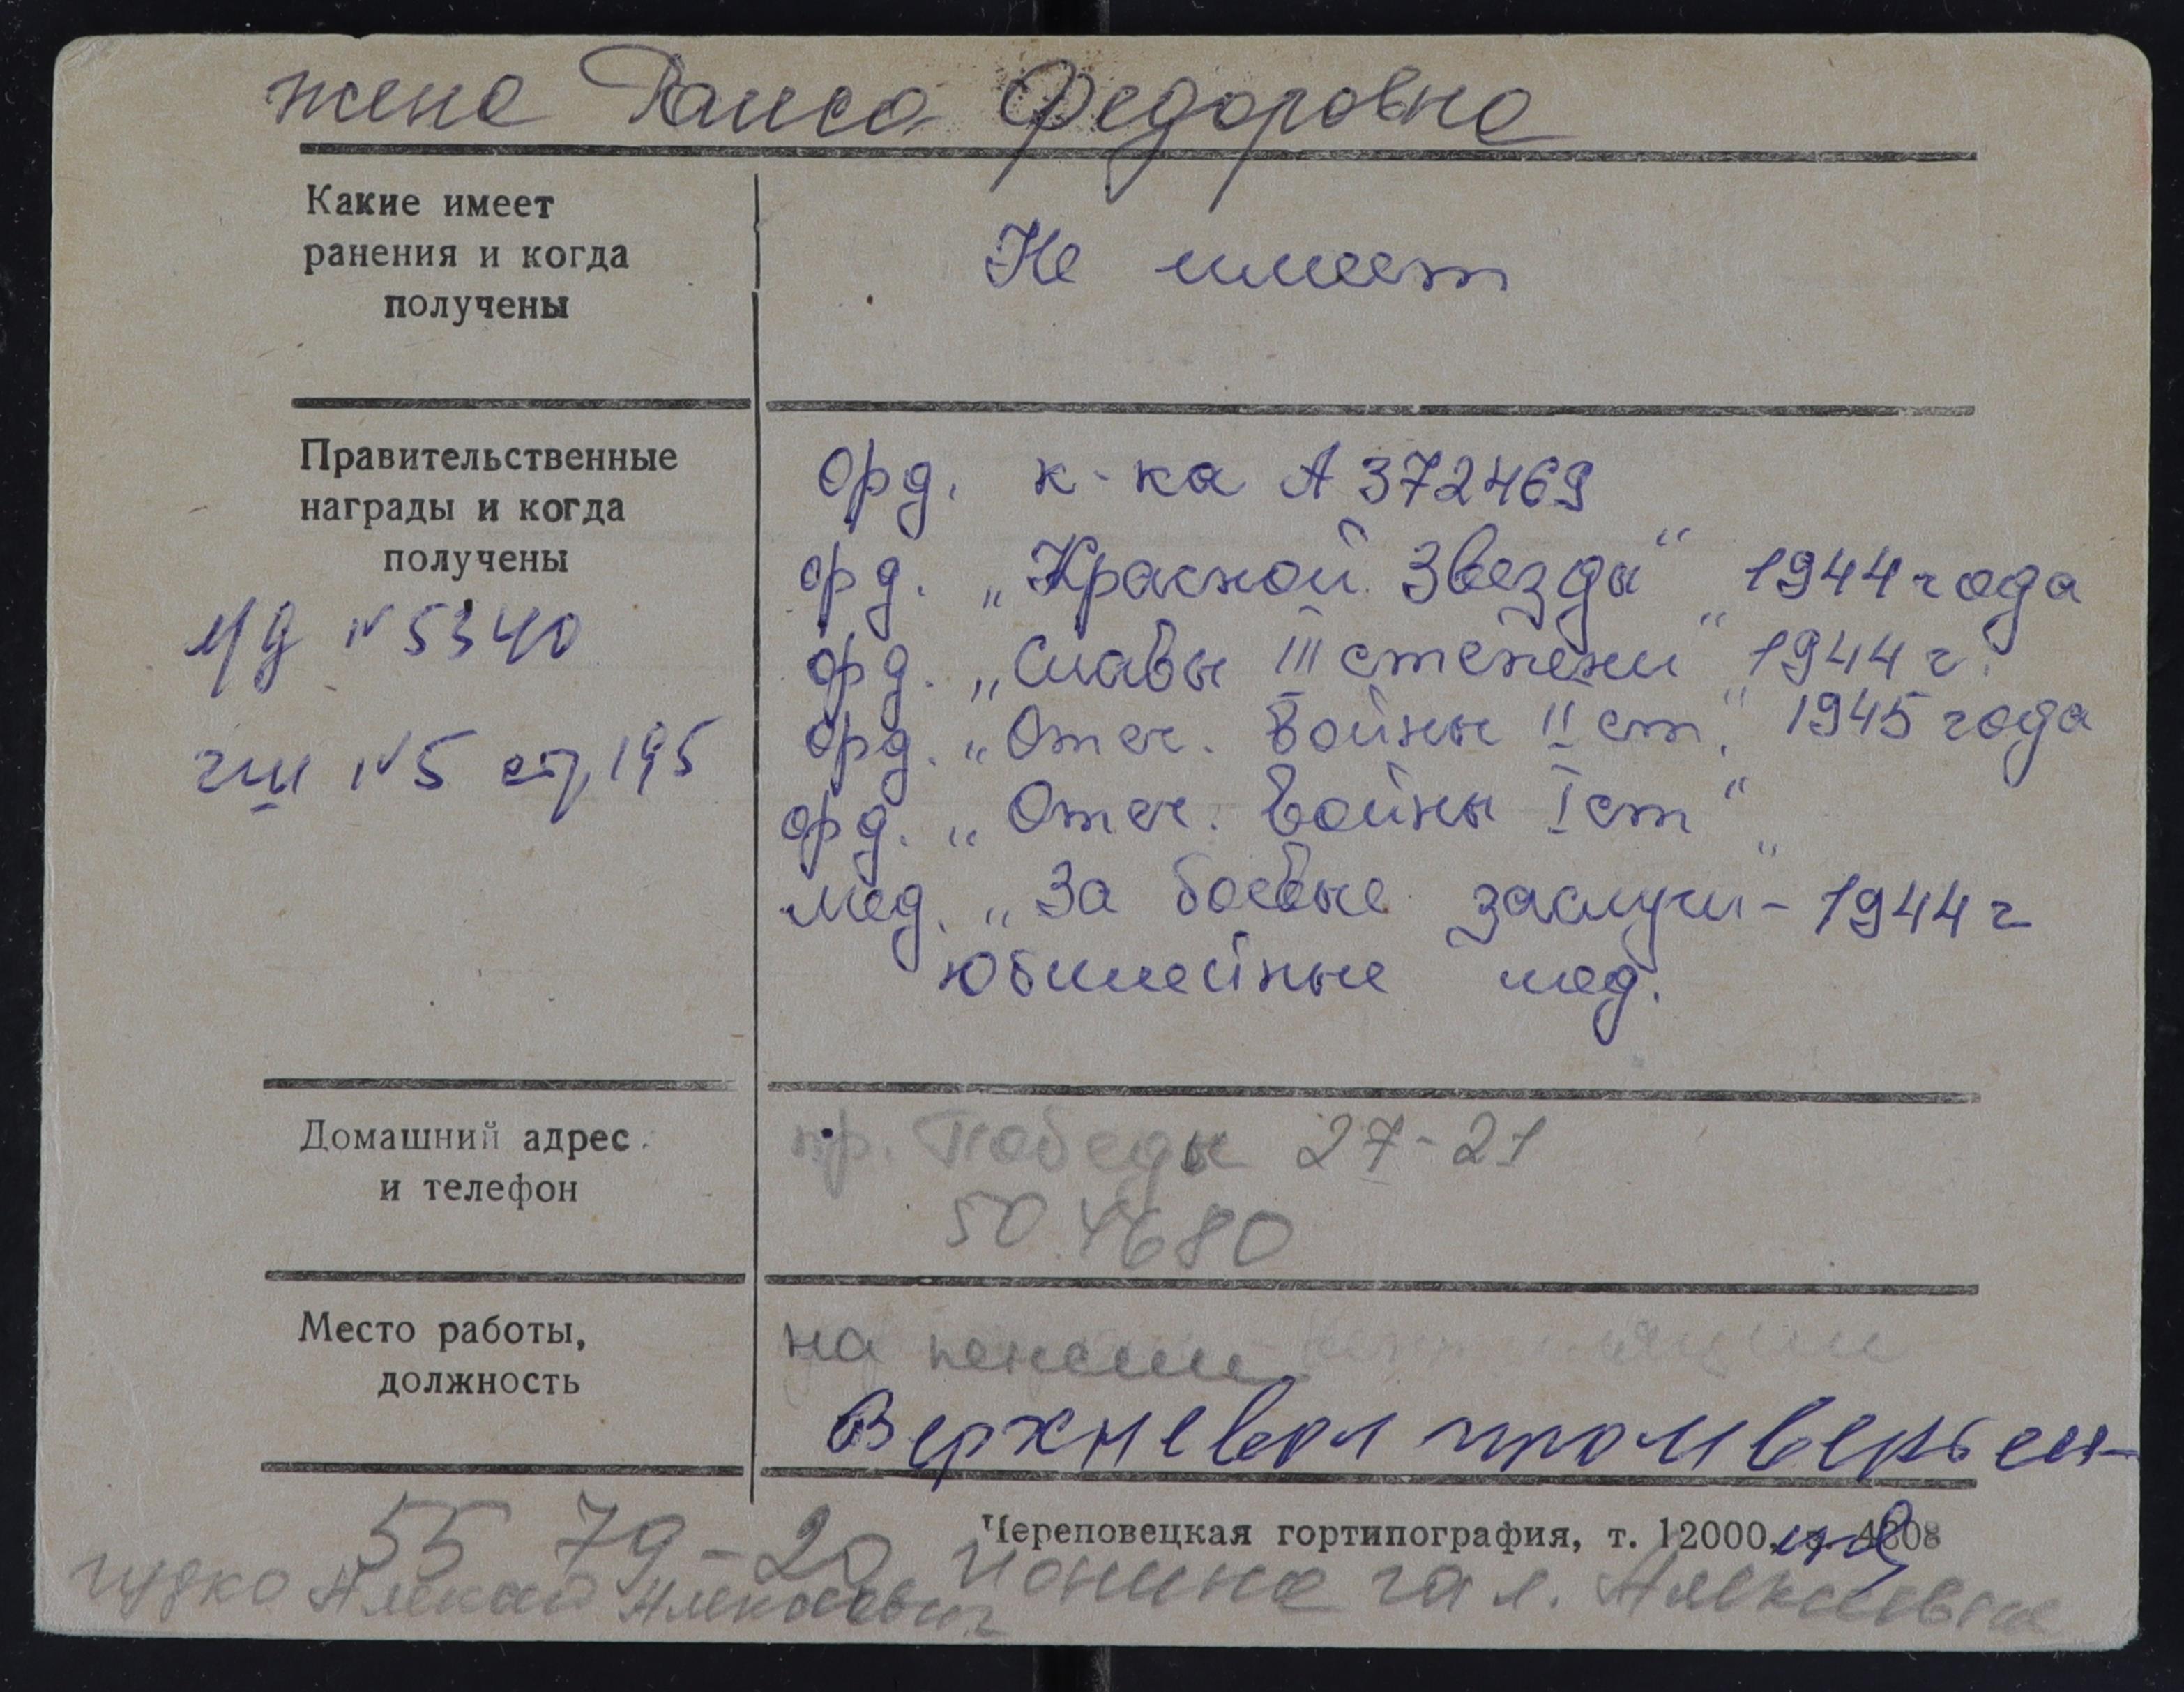 жена Раиса Федоровна
Какие имеет
ранения и когда
получены
Не имеет
Правительственные
награды и когда
получены
л/д №5340
гш №5 стр 195
Орд. к-ка А 372469
орд. „Красной Звезды“ 1944 года
орд. „Славы III степени“ 1944 г.
орд. „Отеч. Войны II ст.“ 1945 года
орд. „Отеч. Войны I ст“
мед. „За боевые заслуги“ - 1944 г
Юбилейные мед.
Домашний адрес
и телефон
пр. Победы 27-21
50 4680
Место работы,
должность
на пенсии
Верхневол
Череповецкая гортипография, т. 12000,
55 79-20
Гудко Алексей Алексеевич
Ионина Гал. Алексеевна